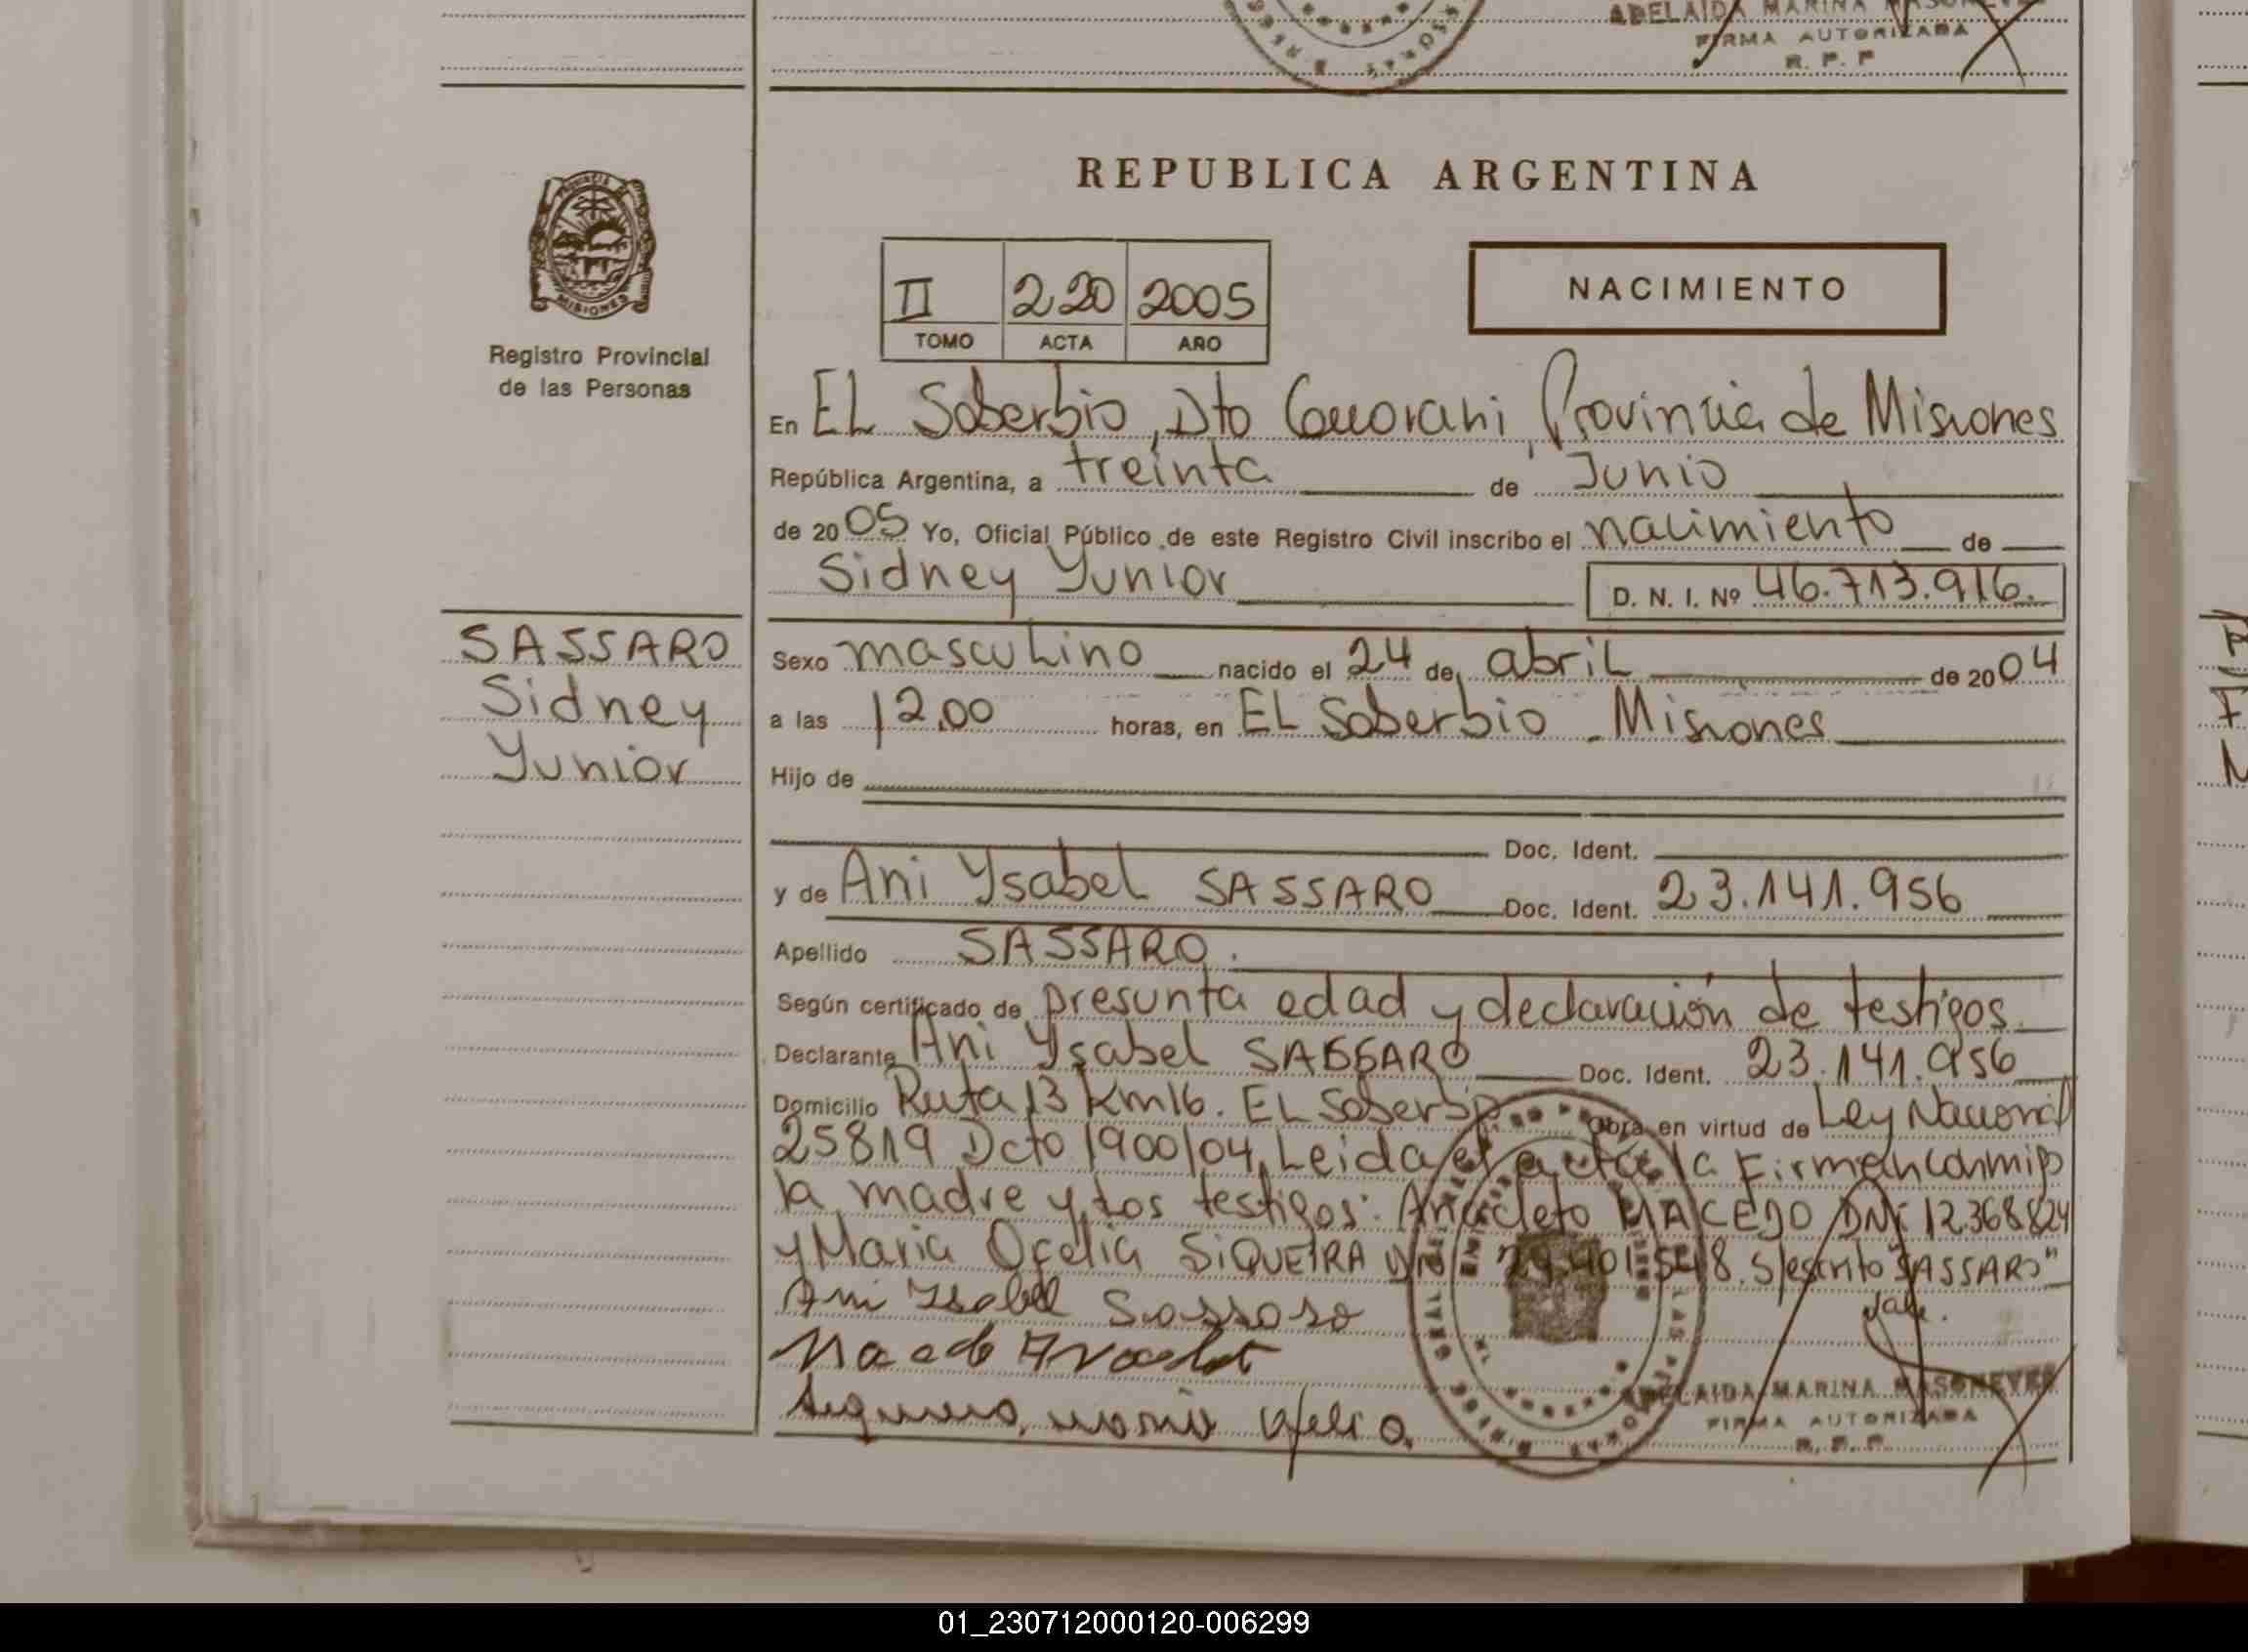 ADELAIDA MARINA MASONEVES
FIRMA AUTORIZADA
R. P. P
REPUBLICA ARGENTINA
PROVINCIA DE
MISIONES
Registro Provincial
de las Personas
II 220 2005
TOMO ACTA AÑO
NACIMIENTO
En EL Soberbio, Dto Guarani, Provincia de Misiones
República Argentina, a treinta de Junio
de 2005 Yo, Oficial Público de este Registro Civil inscribo el nacimiento de
Sidney Yunior D. N. I. Nº 46.713.916.
SASSARO
Sidney
Yunior
Sexo masculino nacido el 24 de abril de 2004
a las 12,00 horas, en EL Soberbio - Misiones
Hijo de
Doc. Ident.
y de Ani Ysabel SASSARO Doc. Ident. 23.141.956
Apellido SASSARO.
Según certificado de presunta edad y declaración de testigos
Declarante Ani Ysabel SASSARO Doc. Ident. 23.141.956
Domicilio Ruta 13 Km 16. EL Soberbio Obra en virtud de Ley Nacional
25819 Dcto 1900/04, Leida el acta la Firman conmigo
la madre y los testigos: Anacleto MACEDO DNI 12.368.824
y Maria Ofelia SIQUEIRA DNI 29.401.548. S/escrito "SASSARO"
Vale.
Ani Ysabel Sassaro
Siqueira, maria ofelia
ADELAIDA MARINA MASONEVES
FIRMA AUTORIZADA
R. P. P.
01_230712000120-006299